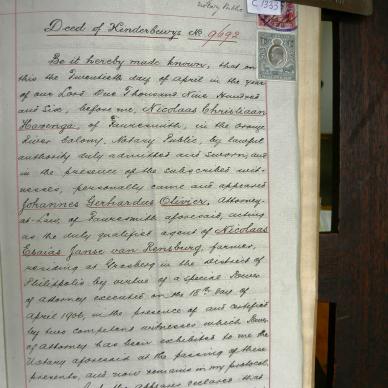 Notary Public
C1333
Deed of Kinderbewys No. 9692
Be it hereby made known, that on
this the Twentieth day of April in the year
of our Lord One Thousand Nine Hundred
and Six, before me, Nicolaas Christiaan
Havenga, of Fauresmith, in the Orange
River Colony, Notary Public, by lawful
authority duly admitted and sworn, and
in the presence of the subscribed wit-
nesses, personally came and appeared
Johannes Gerhardus Olivier, Attorney-
at-Law, of Fauresmith aforesaid, acting
as the duly qualified agent of Nicolaas
Esaias Janse van Rensburg, farmer,
residing at in the district of
Philippolis by virtue of a special Power
of attorney executed on the 18th day of
April 1906, in the presence of and certified
by two competent witnesses which Power
of attorney has been exhibited to me the
Notary aforesaid at the passing of these
presents, and now remains in my protocol.
And the appearer declared that